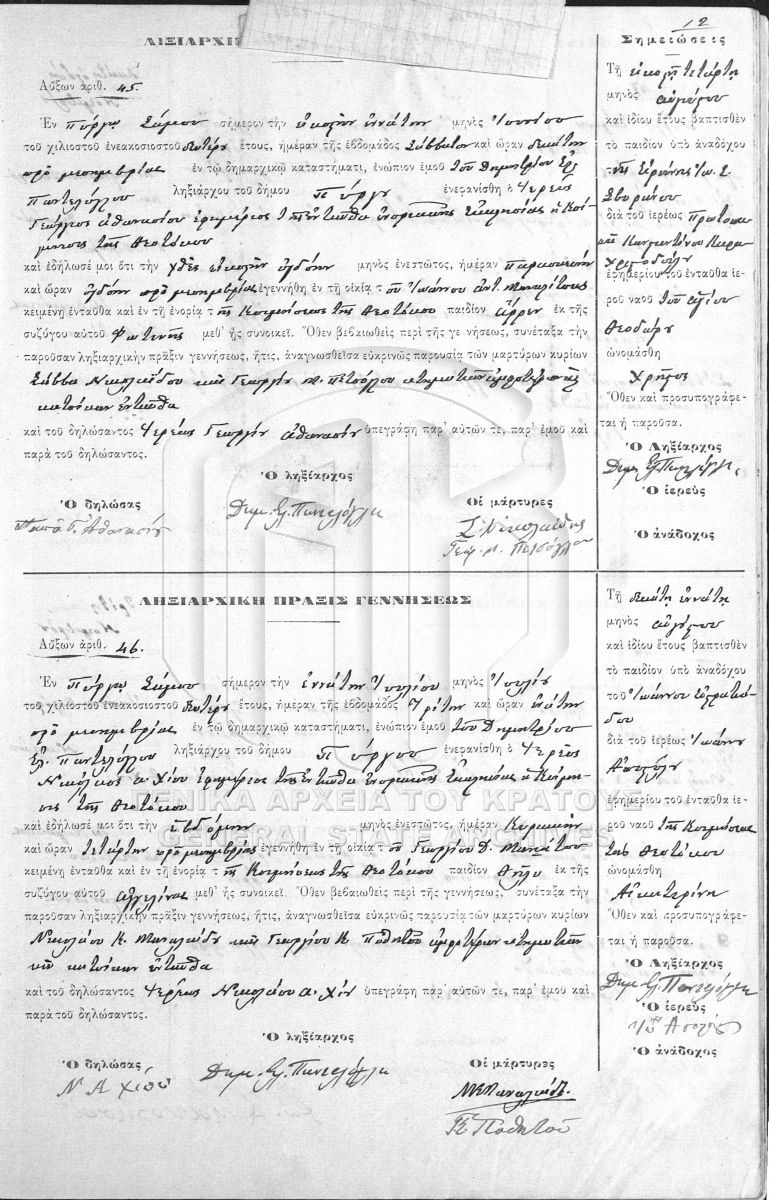 12
ΛΙΞΙΑΡΧΙΚ
Αὔξων ἀριθ. 45.
Ἐν Πύργῳ Σάμου σήμερον τὴν εἰκοστὴν ἐννάτην μηνὸς Ἰουνίου
τοῦ χιλιοστοῦ ἐνεακοσιοστοῦ δευτέρου ἔτους, ἡμέραν τῆς ἑβδομάδος Σάββατον καὶ ὥραν δεκάτην
πρὸ μεσημβρίας ἐν τῷ δημαρχικῷ καταστήματι, ἐνώπιον ἐμοῦ τοῦ Δημητρίου Ἐλ.
Παντελόγλου ληξιάρχου τοῦ δήμου Πύργου ἐνεφανίσθη ὁ Ἱερεὺς
Γεώργιος Ἀθανασίου ἐφημέριος τῆς ἐνταῦθα ἐνοριακῆς Ἐκκλησίας ἡ Κοί-
μησις τῆς Θεοτόκου
καὶ ἐδήλωσέ μοι ὅτι τὴν χθὲς εἰκοστὴν ὀγδόην μηνὸς ἐνεστῶτος, ἡμέραν Παρασκευὴν
καὶ ὥραν ὀγδόην πρὸ μεσημβρίας ἐγεννήθη ἐν τῇ οἰκίᾳ τοῦ Ἰωάννου
κειμένῃ ἐνταῦθα καὶ ἐν τῇ ἐνορίᾳ τῆς Κοιμήσεως τῆς Θεοτόκου παιδίον ἄρρεν ἐκ τῆς
συζύγου αὐτοῦ Φωτεινῆς μεθ' ἧς συνοικεῖ. Ὅθεν βεβαιωθεὶς περὶ τῆς γεννήσεως, συνέταξα τὴν
παροῦσαν ληξιαρχικὴν πρᾶξιν γεννήσεως, ἥτις, ἀναγνωσθεῖσα εὐκρινῶς παρουσίᾳ τῶν μαρτύρων κυρίων
Σάββα Νικολαΐδου καὶ Γεωργίου Μ. Πετσόγλου κτηματιῶν ἀμφοτέρων καὶ
κατοίκων ἐνταῦθα
καὶ τοῦ δηλώσαντος Ἱερέως Γεωργίου Ἀθανασίου ὑπεγράφη παρ' αὐτῶν τε, παρ' ἐμοῦ καὶ
παρὰ τοῦ δηλώσαντος.
Ὁ ληξίαρχος
Ὁ δηλώσας Δημ. Ελ. Παντελόγλου Οἱ μάρτυρες
Παπᾶ Γ. Ἀθανασίου Σ. Νικολαΐδης
Γεώρ. Μ. Πετσόγλου
Σημειώσεις
Τῇ εἰκοστῇ τετάρτῃ
μηνὸς αὐγούστου
καὶ ἰδίου ἔτους βαπτισθὲν
τὸ παιδίον ὑπὸ ἀναδόχου
τῆς Εἰρήνης Ἰω. Σ.
διὰ τοῦ ἱερέως Πρωτοπα-
πᾶ Κωνσταντίνου Καρα-
ἐφημερίου τοῦ ἐνταῦθα ἱε-
ροῦ ναοῦ τοῦ ἁγίου
Θεοδώρου
ὠνομάσθη
Χρῆστος
Ὅθεν καὶ προσυπογράφε-
ται ἡ παροῦσα.
Ὁ Ληξίαρχος
Δημ. Ελ. Παντελόγλου
Ὁ ἱερεὺς
Ὁ ἀνάδοχος
ΛΗΞΙΑΡΧΙΚΗ ΠΡΑΞΙΣ ΓΕΝΝΗΣΕΩΣ
Αὔξων ἀριθ. 46.
Ἐν Πύργῳ Σάμου σήμερον τὴν ἐννάτην Ἰουλίου μηνὸς Ἰουλίου
τοῦ χιλιοστοῦ ἐνεακοσιοστοῦ δευτέρου ἔτους, ἡμέραν τῆς ἑβδομάδος Τρίτην καὶ ὥραν ἐνάτην
πρὸ μεσημβρίας ἐν τῷ δημαρχικῷ καταστήματι, ἐνώπιον ἐμοῦ τοῦ Δημητρίου
Ἐλ. Παντελόγλου ληξιάρχου τοῦ δήμου Πύργου ἐνεφανίσθη ὁ Ἱερεὺς
Νικόλαος Α. Χίου ἐφημέριος τῆς ἐνταῦθα ἐνοριακῆς Ἐκκλησίας ἡ Κοίμη-
σις τῆς Θεοτόκου
καὶ ἐδήλωσέ μοι ὅτι τὴν ἑβδόμην μηνὸς ἐνεστῶτος, ἡμέραν Κυριακὴν
καὶ ὥραν τετάρτην πρὸ μεσημβρίας ἐγεννήθη ἐν τῇ οἰκίᾳ τοῦ Γεωργίου Δ.
κειμένῃ ἐνταῦθα καὶ ἐν τῇ ἐνορίᾳ τῆς Κοιμήσεως τῆς Θεοτόκου παιδίον θῆλυ ἐκ τῆς
συζύγου αὐτοῦ Ἀγγελίνας μεθ' ἧς συνοικεῖ. Ὅθεν βεβαιωθεὶς περὶ τῆς γεννήσεως, συνέταξα τὴν
παροῦσαν ληξιαρχικὴν πρᾶξιν γεννήσεως, ἥτις, ἀναγνωσθεῖσα εὐκρινῶς παρουσίᾳ τῶν μαρτύρων κυρίων
Νικολάου Κ. καὶ Γεωργίου Κ. Ποθητοῦ ἀμφοτέρων κτηματιῶν
καὶ κατοίκων ἐνταῦθα
καὶ τοῦ δηλώσαντος Ἱερέως Νικολάου Α. Χίου ὑπεγράφη παρ' αὐτῶν τε, παρ' ἐμοῦ καὶ
παρὰ τοῦ δηλώσαντος.
Ὁ ληξίαρχος
Ὁ δηλώσας Δημ. Ελ. Παντελόγλου Οἱ μάρτυρες
Ν Α Χίου
Γ Κ Ποθητοῦ
Τῇ δεκάτῃ ἐννάτῃ
μηνὸς αὐγούστου
καὶ ἰδίου ἔτους βαπτισθὲν
τὸ παιδίον ὑπὸ ἀναδόχου
τοῦ Ἰωάννου
διὰ τοῦ ἱερέως Ἰωάννου
ἐφημερίου τοῦ ἐνταῦθα ἱε-
ροῦ ναοῦ τῆς Κοιμήσεως
τῆς Θεοτόκου
ὠνομάσθη
Αἰκατερίνη
Ὅθεν καὶ προσυπογράφε-
ται ἡ παροῦσα.
Ὁ Ληξίαρχος
Δημ. Ελ. Παντελόγλου
Ὁ ἱερεὺς
Ὁ ἀνάδοχος
ΓΕΝΙΚΑ ΑΡΧΕΙΑ ΤΟΥ ΚΡΑΤΟΥΣ
GENERAL STATE ARCHIVES